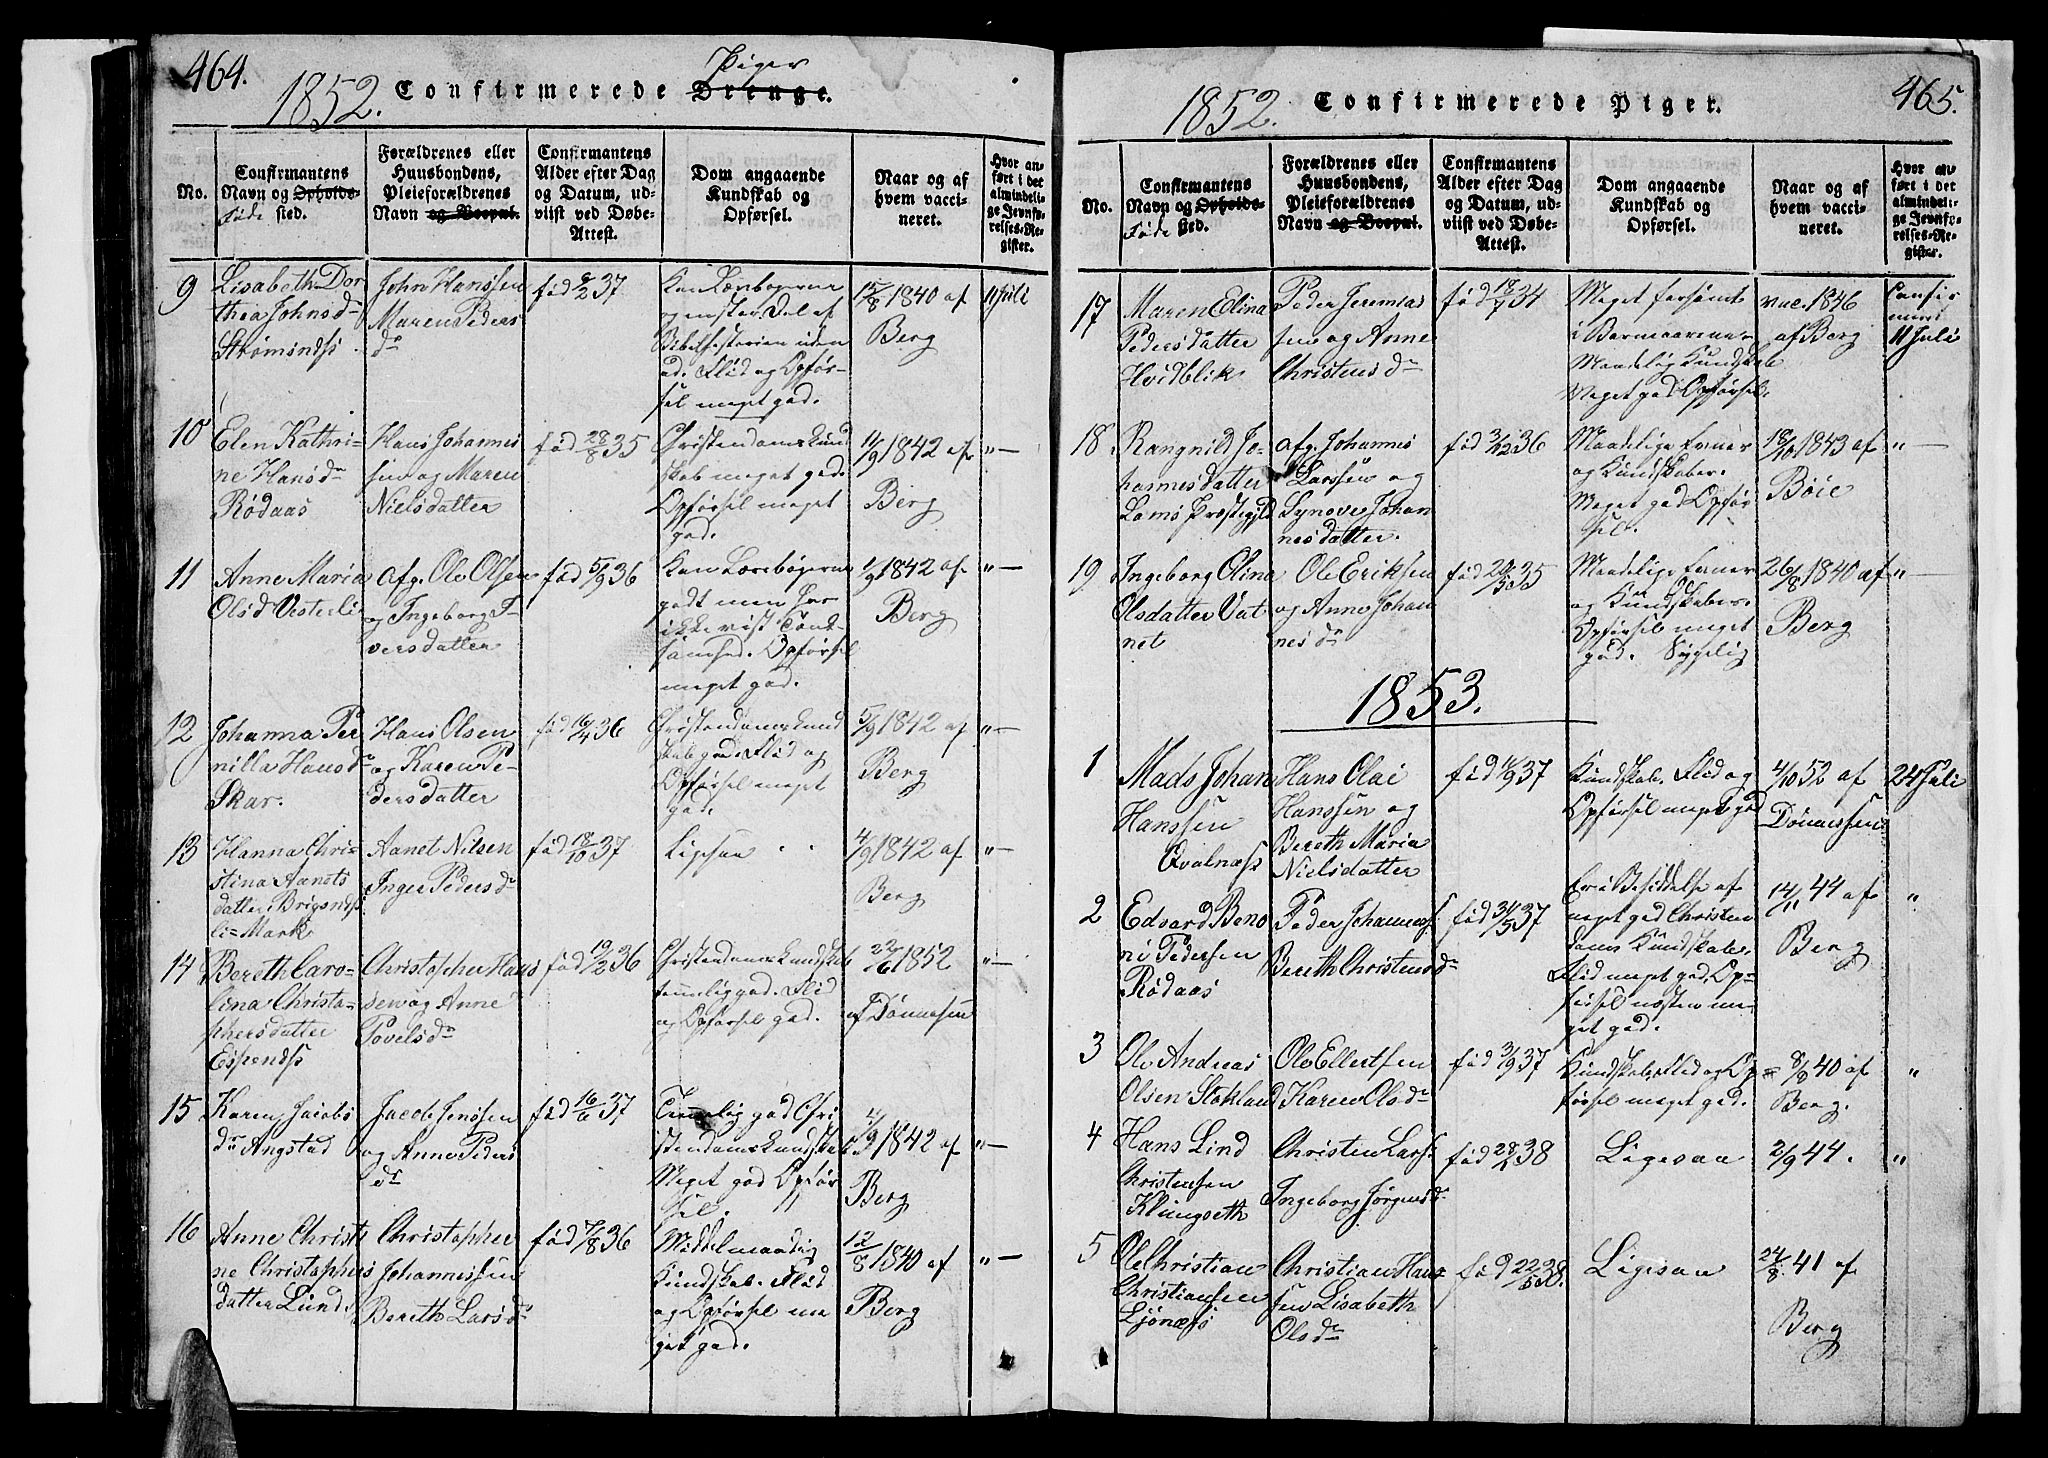 464.
1852. Confirmerede Drenge. Piger
No.
Confirmantens
Navn og Opholds-
Føde sted.
Forældrenes eller
Huusbondens,
Pleieforældrenes
Navn og Boepæl.
Confirmantens
Alder efter Dag
og Datum, ud-
viist ved Døbe-
Attest.
Dom angaaende
Kundskab og
Opførsel.
Naar og af
hvem vacci-
neret.
Hvor an-
ført i det
almindeli-
ge Jevnfø-
relses-Re-
gister.
9
Lisabeth Dor
thea Johnsdr
Strømsnds
John Hanssen
Maren Peders
dr
fød 9/2 37
Kan Lærebøgerne
og en stor Del af
Bibelhistorien uden
ad. Flid og Opfør-
sel meget god.
15/8 1840 af
Berg
11 Juli
10
Elen Kathri-
ne Hansdr
Rödaas
Hans Johannes
sen og Maren
Nielsdatter
fød 28/8 35
Christendomskund
skab meget god.
Opførsel meget
god.
11/9 1842 af
Berg
"—
11
Anne Maria
Olsd Vesterli
afg. Ole Olsen
og Ingeborg I-
versdatter
fød 5/9 36
Kan Lærebøgerne
godt men har
ikke vist Tænk-
somhed. Opførsel
meget god.
1/9 1842 af
Berg
"—
12
Johanna Per
nilla Hansdr
Skar.
Hans Olsen
og Karen Pe-
dersdatter
fød 16/4 36
Christendomskund
skab god. Flid og
Opførsel meget
god.
5/9 1842 af
Berg
"—
13
Hanna Chri-
stina Aanets
datter Brigsnds
li=Mark
Aanet Nilsen
Inger Pedersdr
fød 18/10 37
Ligesaa
4/9 1842 af
Berg
"—
14
Bereth Caro-
lina Christo-
phersdatter
Espends
Christopher Hans
sen og Anne
Povelsdr
fød 19/2 36
Christendomskundskab
temmelig god. Flid
og Opførsel god.
22/6 1852
af Dönnesen
"—
15
Karen Jacobs
dr Angstad
Jacob Jenssen
og Anne Peders
dr
fød 16/6 37
Temmelig god Chri
stendomskundskab
Meget god Opfør
sel.
4/9 1842 af
Berg
"—
16
Anne Christi
ne Christophers
datter Lund
Christopher
Johannessen
Bereth Larsdr
fød 7/8 36
Middelmaadig
Kundskab. Flid
og Opførsel me
get god.
12/8 1840 af
Berg
"—
465.
1852. Confirmerede Piger.
No.
Confirmantens
Navn og Opholds-
Føde sted.
Forældrenes eller
Huusbondens,
Pleieforældrenes
Navn og Boepæl.
Confirmantens
Alder efter Dag
og Datum, ud-
viist ved Døbe-
Attest.
Dom angaaende
Kundskab og
Opførsel.
Naar og af
hvem vacci-
neret.
Hvor an-
ført i det
almindeli-
ge Jevnfø-
relses-Re-
gister.
17
Maren Elina
Pedersdatter
Hvidblik
Peder Jeremias
sen og Anne
Christensdr
fød 18/7 34
Meget forsømt
i Barnaarene.
Maadelig Kundskab
Meget god Opførsel.
vac. 1846
af Berg
Confir
meret
11 Juli
18
Rangnild Jo-
hannesdatter
Loms Prestegjld
afg. Johannes
Larssen og
Synove Johan
nesdatter.
fød 3/12 36
Maadelige Evner
og Kundskaber.
Meget god Opfør
sel.
18/10 1843 af
Böie
"—
19
Ingeborg Olina
Olsdatter Vat
net
Ole Eriksen
og Anne Johan
nesdr
fød 20/10 35
Maadelige Evner
og Kundskaber.
Opførsel meget
god. Sygelig
26/8 1840 af
Berg
"—
1853.
1
Mads Johan
Hanssen
Qvalnæss
Hans Olai
Hanssen og
Bereth Maria
Nielsdatter
fød 11/9 37
Kundskab. Flid og
Opførsel meget god
4/10 52 af
Dönnessen
24 Juli
2
Edvard Beno
ni Pedersen
Rödaas
Peder Johanness.
Bereth Christensdr
fød 31/5 37
Er i Besiddelse af
meget god Christen
doms Kundskaber.
Flid meget god. Op-
førsel næsten me-
get god.
14/11 44 af
Berg
"
3
Ole Andreas
Olsen Stokland
Ole Ellertsen
Karen Olsdr
fød 3/9 37
Kundskab, Flid og Op=
førsel meget god.
8/8 40 af
Berg.
"
4
Hans Lind
Christensen
Klungseth
Christen Lars
Ingeborg Jörgensdr
fød 28/1 38
Ligesaa
2/9 44.
"
5
Ole Christian
Christiansen
Ljönæss
Christian Han-
sen Lisabeth
Olsdr
fød 22/5 38.
Ligesaa
24/8. 41 af
Berg